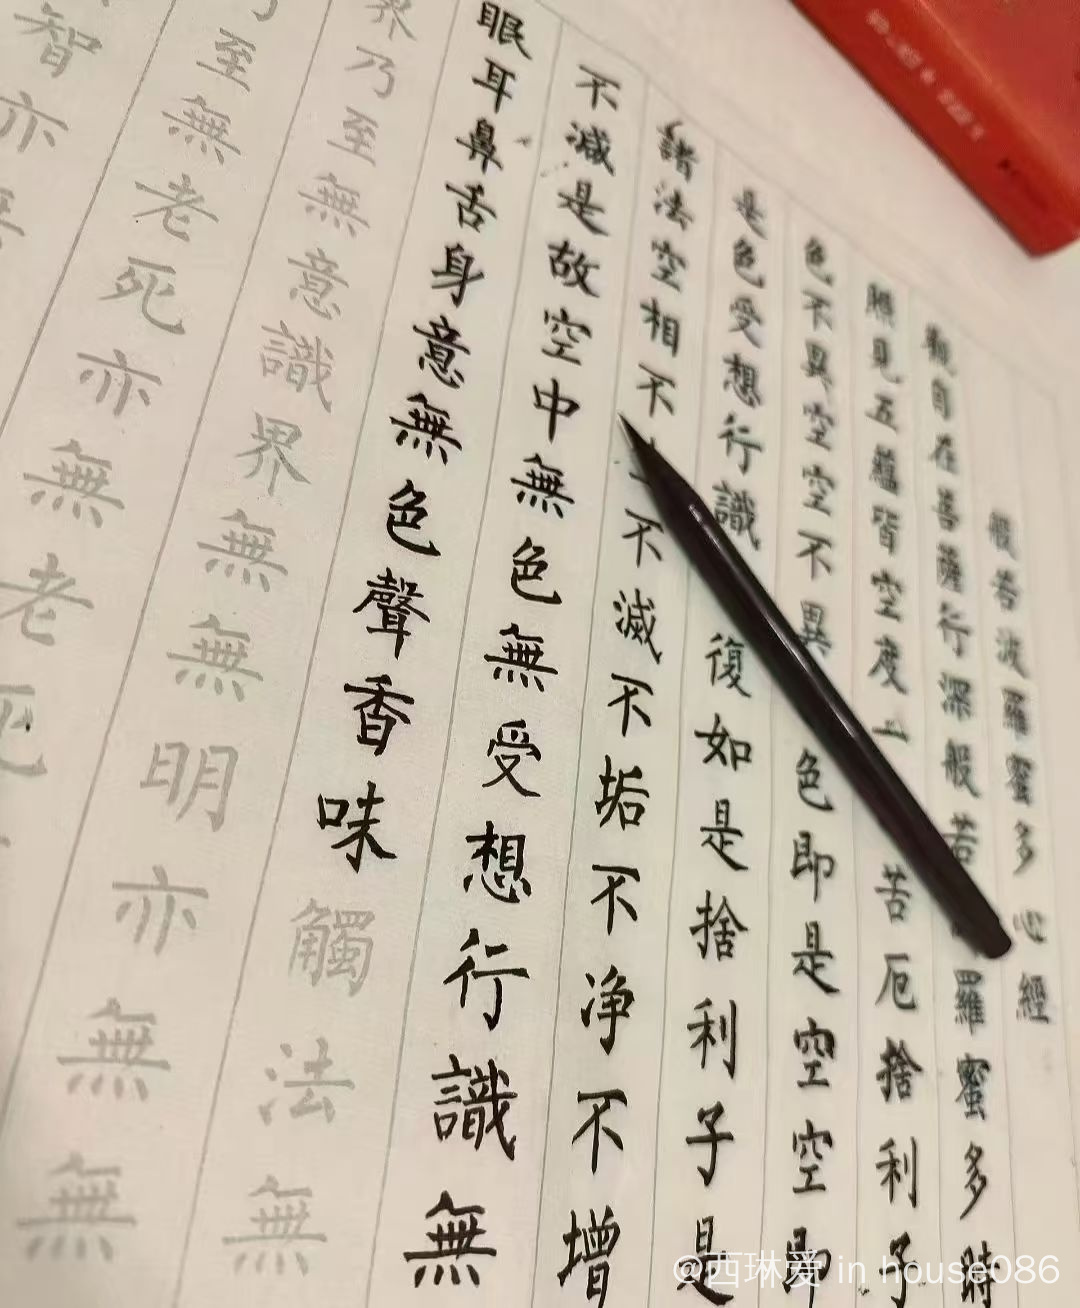 般若波羅蜜多心經
觀自在菩薩行深般若羅蜜多時
照見五蘊皆空度一苦厄捨利子
色不異空空不異色即是空空即
是色受想行識復如是捨利子是
諸法空相不不滅不垢不净不增
不減是故空中無色無受想行識無
眼耳鼻舌身意無色聲香味觸法無
界乃至無意識界無無明亦無無
至無老死亦無老死
智亦
@西琳爱 in house086